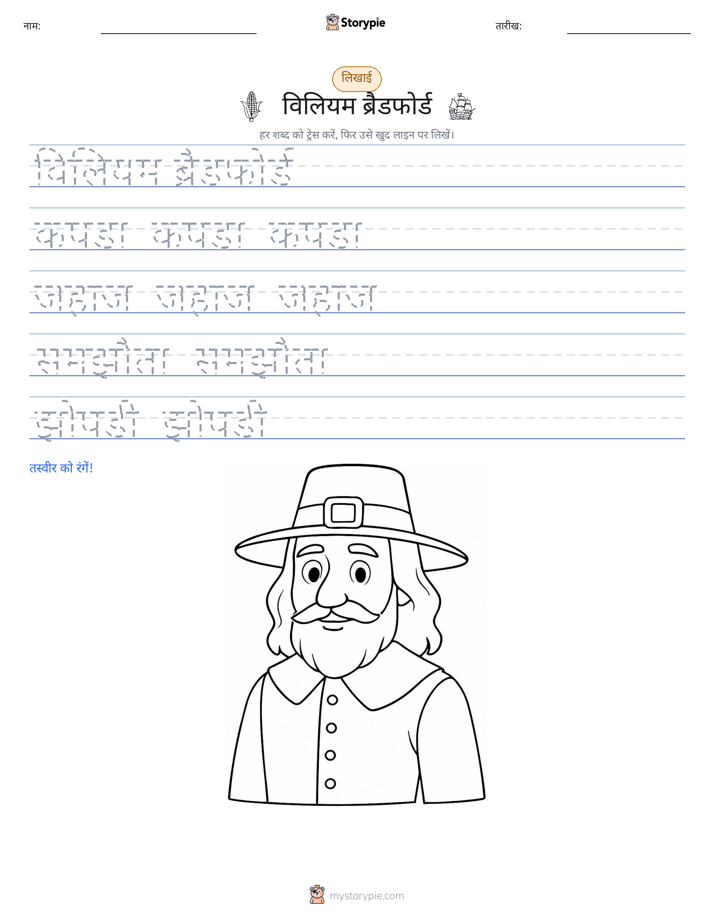 नाम:
Storypie
तारीख:
लिखाई
विलियम ब्रैडफोर्ड
हर शब्द को ट्रेस करें, फिर उसे खुद लाइन पर लिखें।
विलियम ब्रैडफोर्ड
कपडा कपडा कपडा
जहाज जहाज जहाज
समझौता समझौता
झोपडी झोपडी
तस्वीर को रंगें!
mystorypie.com